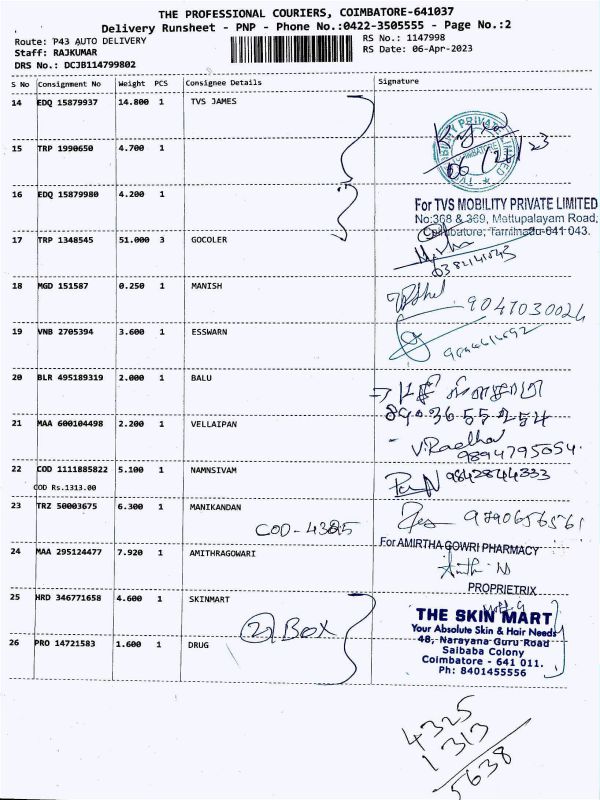 THE PROFESSIONAL COURIERS, COIMBATORE-641037
Delivery Runsheet - PNP - Phone No.:0422-3505555 - Page No.:2
Route: P43 AUTO DELIVERY
RS No.: 1147998
Staff: RAJKUMAR
RS Date: 06-Apr-2023
DRS No.: DCJB114799802
S No Consignment No Weight PCS Consignee Details Signature
14 EDQ 15879937 14.800 1 TVS JAMES
15 TRP 1990650 4.700 1
06/ /23
16 EDQ 15879980 4.200 1
For TVS MOBILITY PRIVATE LIMITED
No:368 & 369, Mettupalayam Road,
Coimbatore, Tamilnadu-641 043.
17 TRP 1348545 51.000 3 GOCOLER
18 MGD 151587 0.250 1 MANISH
9047030024
19 VNB 2705394 3.600 1 ESSWARN
20 BLR 495189319 2.000 1 BALU
8903655254
21 MAA 600104498 2.200 1 VELLAIPAN
V.Radha
9894795054
22 COD 1111885822 5.100 1 NAMNSIVAM
9842844333
COD Rs.1313.00
23 TRZ 50003675 6.300 1 MANIKANDAN
COD-4325
9790656561
24 MAA 295124477 7.920 1 AMITHRAGOWARI
For AMIRTHA GOWRI PHARMACY
PROPRIETRIX
25 HRD 346771658 4.600 1 SKINMART
2 Box
THE SKIN MART
Your Absolute Skin & Hair Needs
48, Narayana Guru Road
Saibaba Colony
Coimbatore - 641 011.
Ph: 8401455556
26 PRO 14721583 1.600 1 DRUG
4325
1313
5638